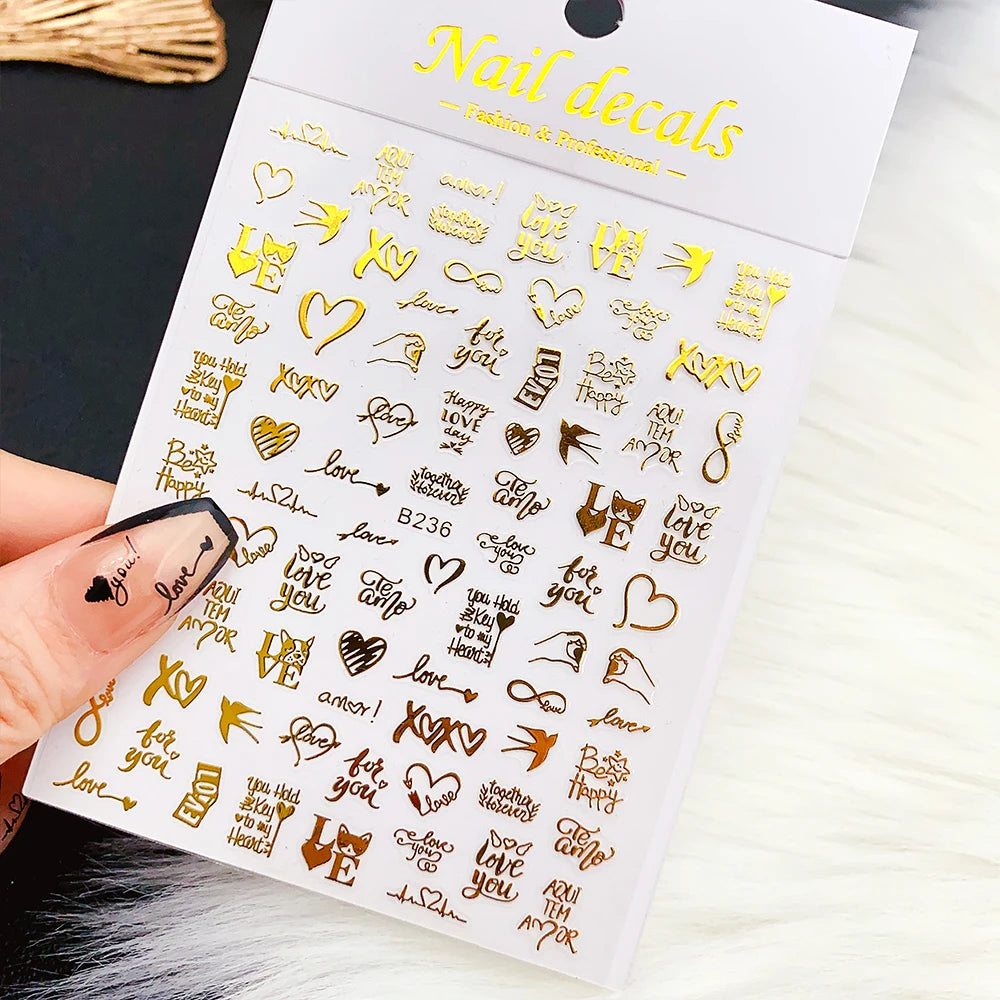 Nail decals
— Fashion & Professional —
AQUI
TEM
AMOR
amor!
together
forever
love
you
LOVE
You Hold
The Key
to my
Heart
LOVE
XO
love
love
love
you
Te
amo
for
you
LOVE
Be
Happy
XOXO
You Hold
The Key
to my
Heart
XOXO
love
Happy
LOVE
day
AQUI
TEM
AMOR
love
Be
Happy
love
together
forever
Te
amo
LOVE
love
you
B236
love
love
you
for
you
you!
love
love
love
you
Te
amo
You Hold
The Key
to my
Heart
AQUI
TEM
AMOR
LOVE
love
love
love
XO
amor!
XOXO
for
you
love
for
you
love
together
forever
Be
Happy
love
LOVE
You Hold
The Key
to my
Heart
LOVE
love
you
love
you
Te
amo
AQUI
TEM
AMOR